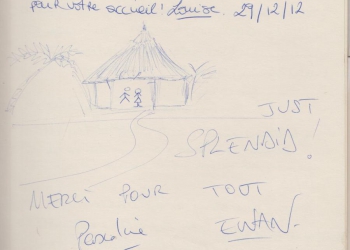 pour votre accueil! Louise. 29/12/12
JUST
SPLENDID!
MERCI POUR TOUT
Pascaline EWAN.